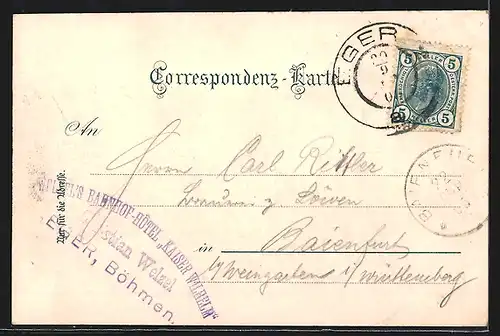 EGER
5 5
5 5
Correspondenz-Karte
An
Herrn Carl Rittler
Brauerei z. Löwen
in Baienfurt
b/ Weingarten i/ Württemberg
Nur für die Adresse.
WELZEL'S BAHNHOF-HÔTEL „KAISER WILHELM“
Christian Welzel
EGER, Böhmen.
BAIENFURT